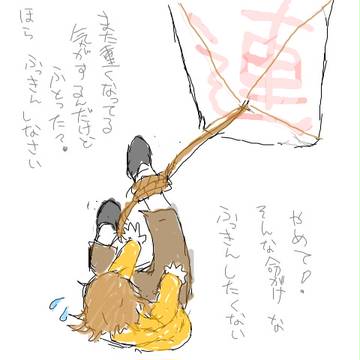 また重くなってる
気がするんだけど
ふとった？
ほら ふっきん しなさい
やめて！
そんな命がけ な
ふっきんしたくない